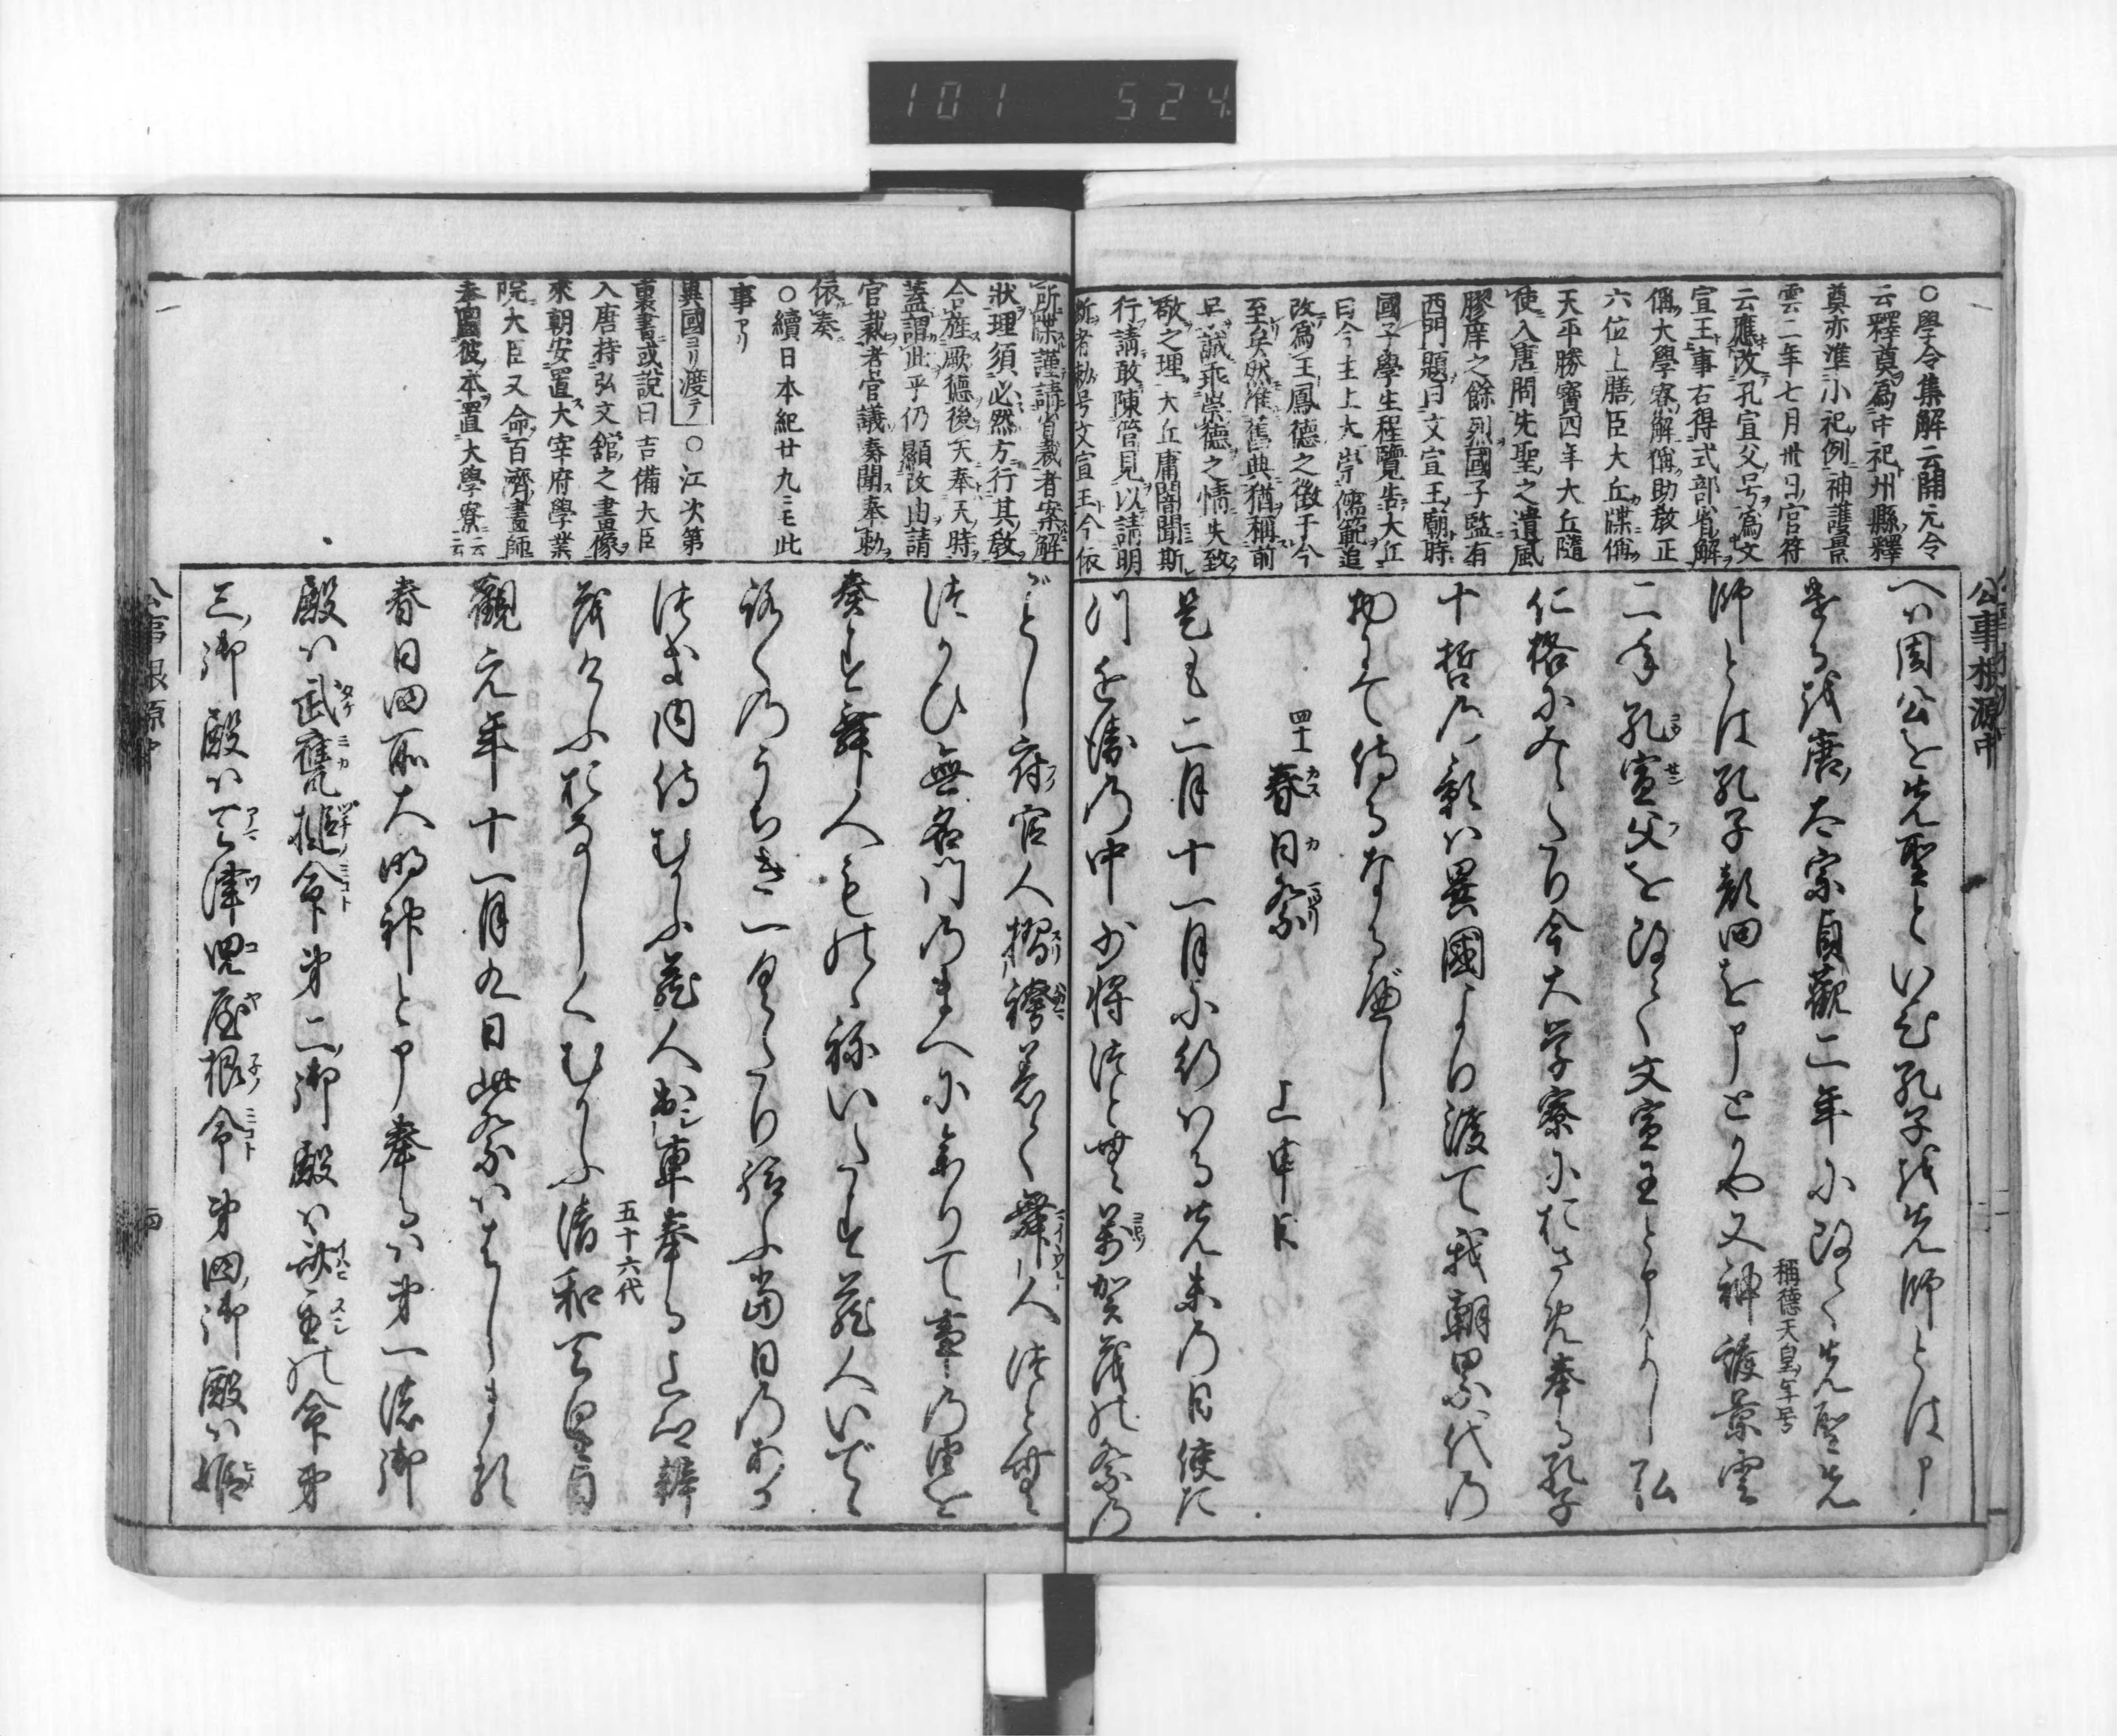 101 524
公事根源中
○學令集解云開元令
云釋奠爲中祀州縣釋
奠亦準小祀例神護景
雲二年七月卅日官符
云應改孔宣父号爲文
宣王事右得式部省解
偁大學寮解偁助敎正
六位上膳臣大丘牒偁
天平勝寶四年大丘隨
使入唐問先聖之遺風
膠庠之餘烈國子監有
西門題曰文宣王廟時
國子學生程覽告大丘
曰今主上大崇儒範追
改爲王鳳德之徵于今
至矣然准舊典猶稱前
号誠乖崇德之情失致
敬之理大丘庸闇聞斯
行請敢陳管見以請明
斷者勅号文宣王今依
へハ周公を先聖といひ孔子を先師とは申
せるを唐太宗貞觀二年に改て先聖先
師とは孔子顔回を申とかや又神護景雲
稱德天皇年号
二年孔宣父を改て文宣王と申よし弘
仁格にみえたり今大学寮におさめ奉る孔子
十哲の影ハ異國より渡て我朝累代の
物にて侍るなるべし
四十 春日祭 上申日
是も二月十一月に行はる先未の日使た
つ近衛の中少將つとむ萬賀茂の祭の
所牒謹請省裁者案解
狀理須必然方行其敎
合旌厥德後天奉天時
蓋謂此乎仍顯改由請
官裁者官議奏聞奉勅
依奏
○續日本紀廿九ニモ此
事アリ
異國ヨリ渡テ ○江次第
裏書或說曰吉備大臣
入唐持弘文舘之畫像
來朝安置大宰府學業
院大臣又命百濟畫師
奉圖彼本置大學寮云云
ごとし府官人摺袴着て舞人つとむ
つかひ無名門のまへに参りて事の由を
奏す舞人もの禄いたす蔵人いでて
紹のうちき一かさねを給ふ當日のあか
つき内侍むかふ蔵人出車奉る上卿辨
我々におなじくむかふ清和天皇貞
五十六代
觀元年十一月九日此祭ハはじまれ
春日四所大明神と申奉るハ第一之御
殿ハ武甕槌命第二御殿ハ斎主の命第
三御殿ハ天津兒屋根命第四御殿ハ姫
公事根源中 四